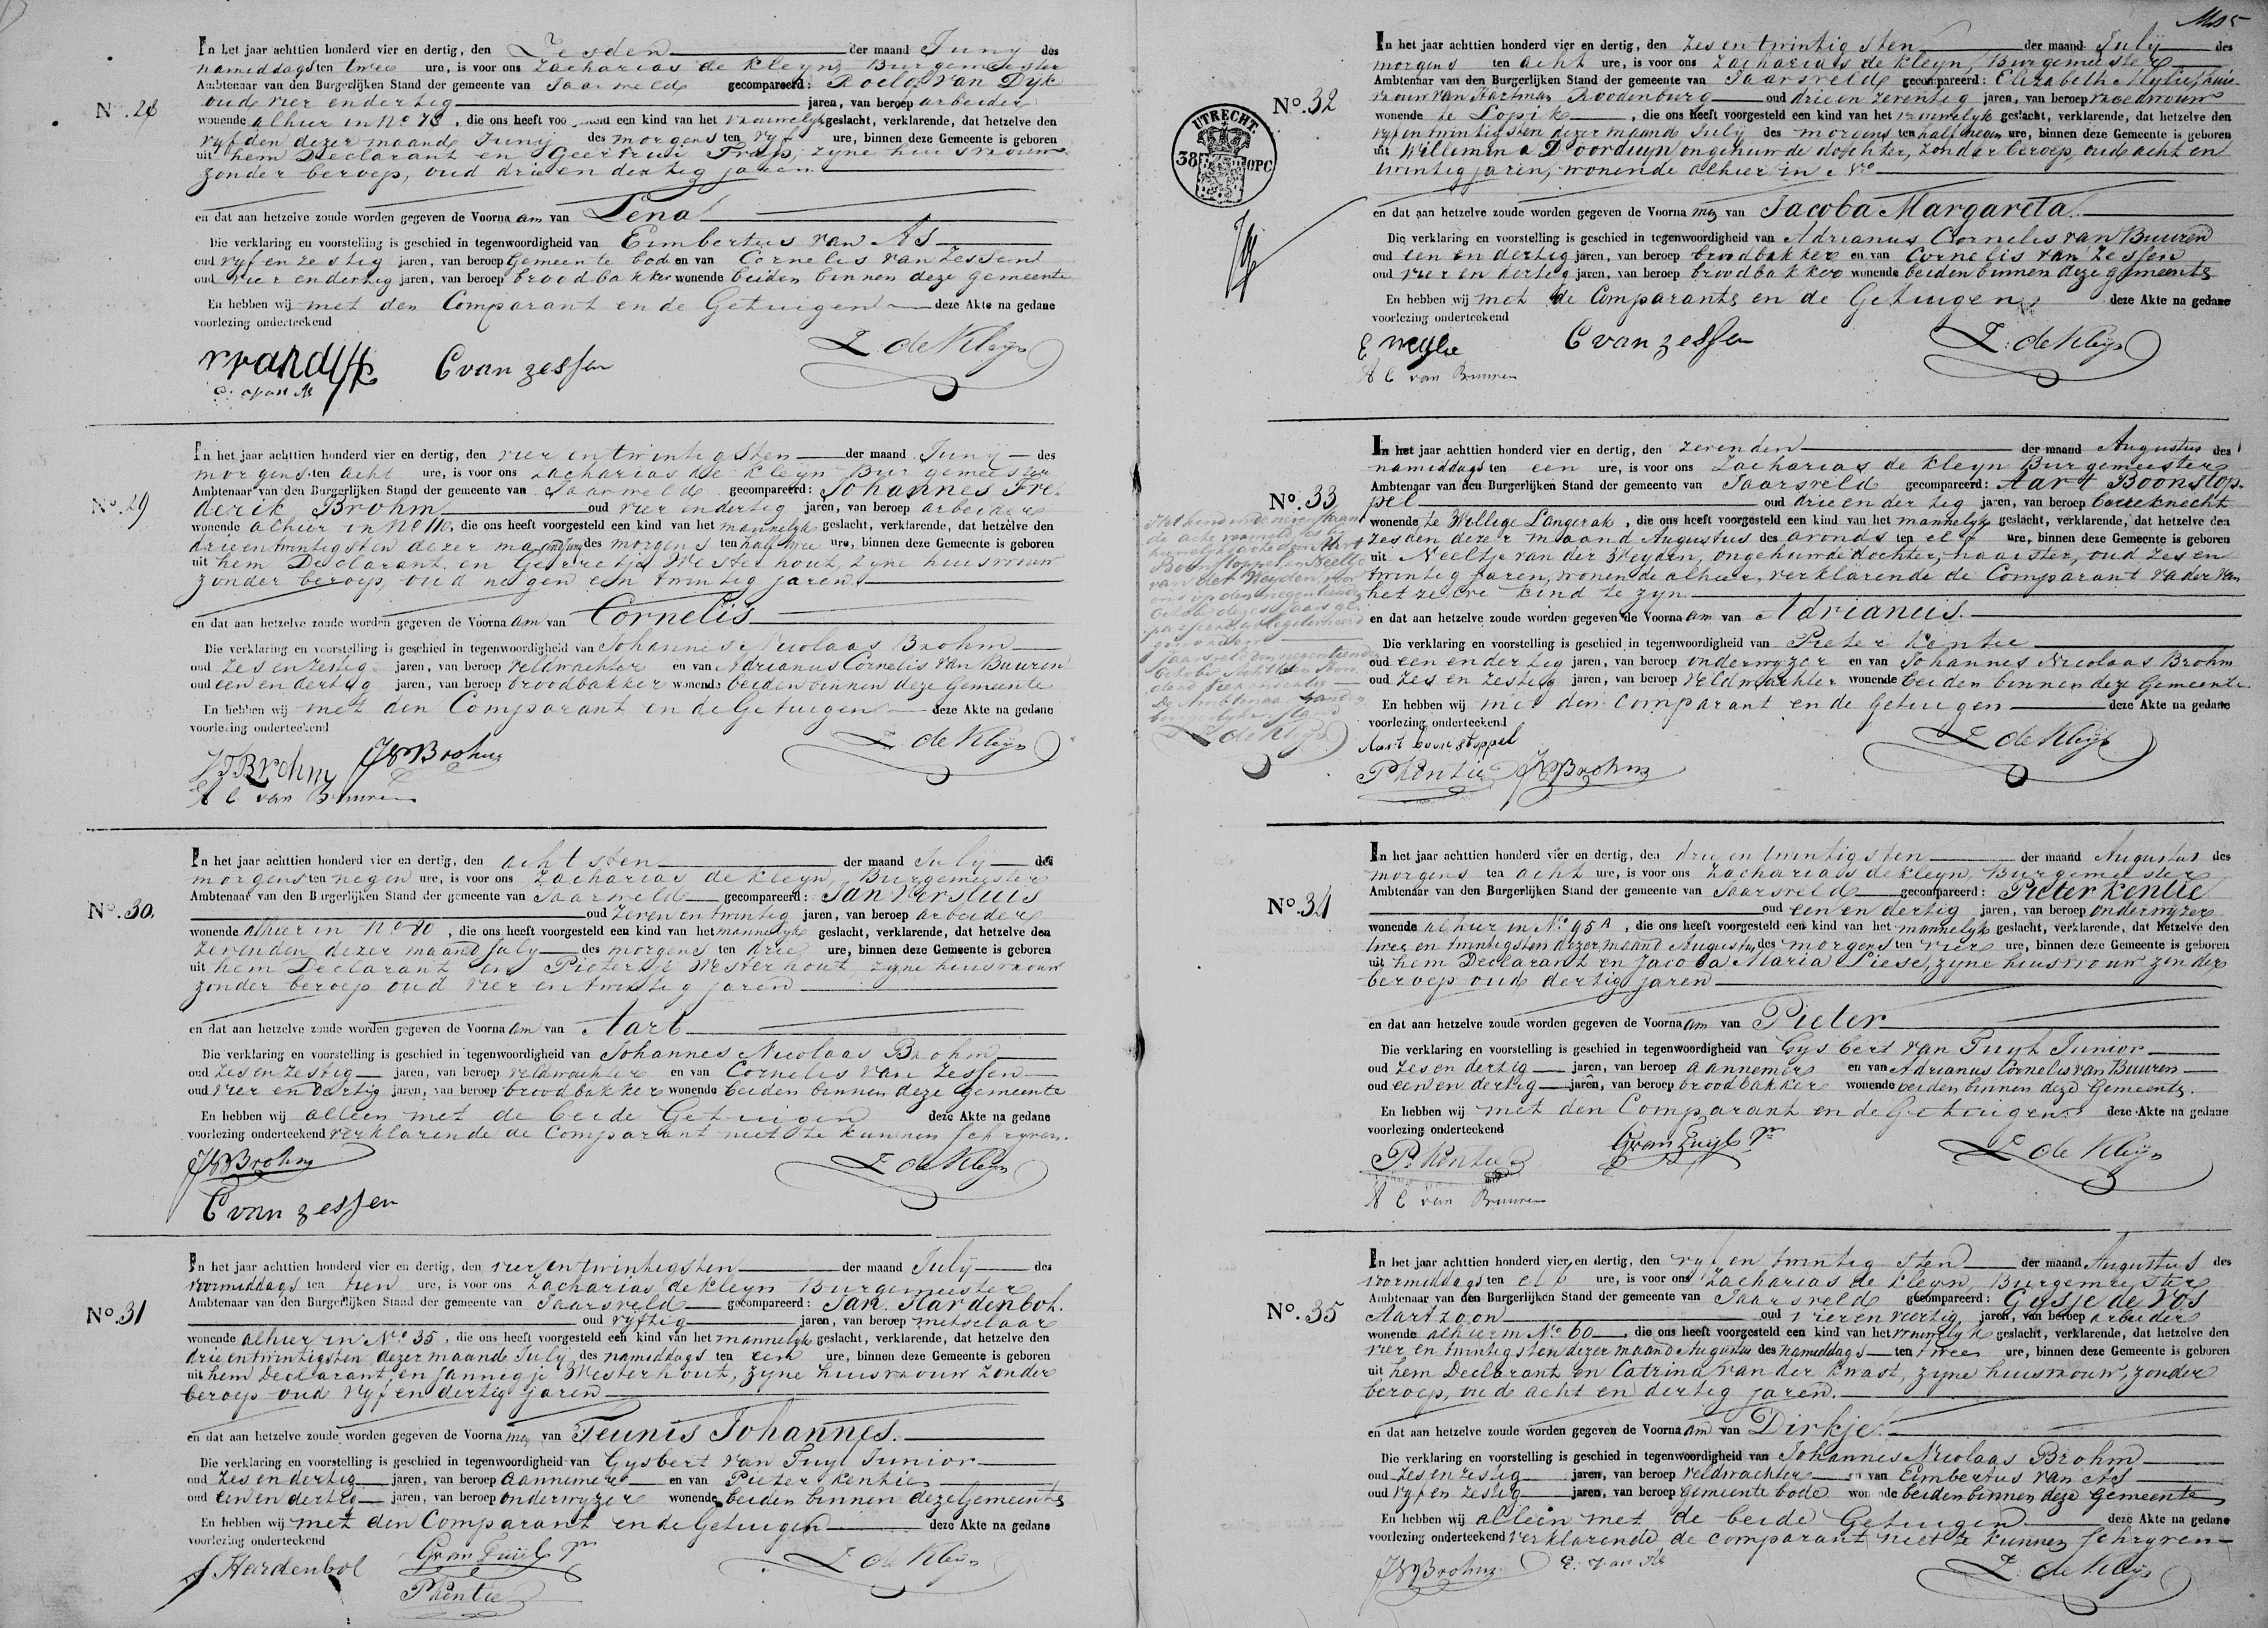 In het jaar achttien honderd vier en dertig, den Zesden der maand Juny des
namiddags ten twee ure, is voor ons Zacharias de Kleyn, Burgemeester
Ambtenaar van den Burgerlijken Stand der gemeente van Jaarsveld gecompareerd: Roelof van Dyk
oud vier en dertig jaren, van beroep arbeider
No. 28
wonende alhier in No 78, die ons heeft een kind van het vrouwelyk geslacht, verklarende, dat hetzelve den
vyfden dezer maand Juny des morgens ten vyf ure, binnen deze Gemeente is geboren
uit hem Declarant en Geertrui Trap, zyne huisvrouw
zonder beroep, oud drie en dertig jaren
en dat aan hetzelve zoude worden gegeven de Voorna am van Lena
Die verklaring en voorstelling is geschied in tegenwoordigheid van Eimbertus van As
oud vyf en zestig jaren, van beroep Gemeente bode en van Cornelis van Zessen
oud vier en dertig jaren, van beroep broodbakker wonende beiden binnen deze gemeente
En hebben wij met den Comparant en de Getuigen deze Akte na gedane
voorlezing onderteekend
rvandyk C van zessen Z. de Kleijn
E. van As
In het jaar achttien honderd vier en dertig, den vier en twintigsten der maand Juny des
morgens ten acht ure, is voor ons Zacharias de Kleyn Burgemeester
Ambtenaar van den Burgerlijken Stand der gemeente van Jaarsveld gecompareerd: Johannes Fre-
No. 29
derik Brohm oud vier en dertig jaren, van beroep arbeider
wonende alhier in No 110, die ons heeft voorgesteld een kind van het mannelyk geslacht, verklarende, dat hetzelve den
drie en twintigsten dezer maand Juny des morgens ten half twee ure, binnen deze Gemeente is geboren
uit hem Declarant en Gerretje Westerhout, zyne huisvrouw
zonder beroep, oud negen en twintig jaren
en dat aan hetzelve zoude worden gegeven de Voorna am van Cornelis
Die verklaring en voorstelling is geschied in tegenwoordigheid van Johannes Nicolaas Brohm
oud zes en zestig jaren, van beroep veldwachter en van Adrianus Cornelis van Buuren
oud een en dertig jaren, van beroep broodbakker wonende beiden binnen deze Gemeente
En hebben wij met den Comparant en de Getuigen deze Akte na gedane
voorlezing onderteekend
J F Brohm J N Brohm Z. de Kleijn
A C van Buuren
In het jaar achttien honderd vier en dertig, den achtsten der maand July des
morgens ten negen ure, is voor ons Zacharias de Kleyn, Burgemeester
Ambtenaar van den Burgerlijken Stand der gemeente van Jaarsveld gecompareerd: Jan Versluis
No. 30.
oud zeven en twintig jaren, van beroep arbeider
wonende alhier in No 80, die ons heeft voorgesteld een kind van het mannelyk geslacht, verklarende, dat hetzelve den
zevenden dezer maand July des morgens ten drie ure, binnen deze Gemeente is geboren
uit hem Declarant en Pietertje Westerhout, zyne huisvrouw
zonder beroep oud vier en twintig jaren
en dat aan hetzelve zoude worden gegeven de Voorna am van Aart
Die verklaring en voorstelling is geschied in tegenwoordigheid van Johannes Nicolaas Brohm
oud zes en zestig jaren, van beroep veldwachter en van Cornelis van Zessen
oud vier en dertig jaren, van beroep broodbakker wonende beiden binnen deze gemeente
En hebben wij alleen met de beide Getuigen deze Akte na gedane
voorlezing onderteekend verklarende de Comparant niet te kunnen schryven.
J N Brohm Z de Kleijn
C van zessen
In het jaar achttien honderd vier en dertig, den vier en twintigsten der maand July des
voormiddags ten tien ure, is voor ons Zacharias de Kleyn Burgemeester
Ambtenaar van den Burgerlijken Stand der gemeente van Jaarsveld gecompareerd: Jan Hardenbol.
No. 31
oud vyftig jaren, van beroep metselaar
wonende alhier in No 35, die ons heeft voorgesteld een kind van het mannelyk geslacht, verklarende, dat hetzelve den
drie en twintigsten dezer maand July des namiddags ten een ure, binnen deze Gemeente is geboren
uit hem Declarant, en Jannigje Westerhout, zyne huisvrouw zonder
beroep oud vyf en dertig jaren
en dat aan hetzelve zoude worden gegeven de Voorna men van Teunis Johannes.
Die verklaring en voorstelling is geschied in tegenwoordigheid van Gysbert van Tuyl Junior
oud zes en dertig jaren, van beroep Aannemer en van Pieter Kentie
oud een en dertig jaren, van beroep onderwyzer wonende beiden binnen deze Gemeente
En hebben wij met den Comparant en de Getuigen deze Akte na gedane
voorlezing onderteekend
J Hardenbol G van Tuijl Jr Z de Kleijn
P Kentie
UTRECHT.
38 OPC
In het jaar achttien honderd vier en dertig, den zes en twintigsten der maand July des
morgens ten acht ure, is voor ons Zacharias de Kleyn, Burgemeester
Ambtenaar van den Burgerlijken Stand der gemeente van Jaarsveld gecompareerd: Elizabeth Mylie, huis-
No. 32
vrouw van Hartman Roodenburg oud drie en zeventig jaren, van beroep vroedvrouw
wonende te Lopik, die ons heeft voorgesteld een kind van het vrouwelyk geslacht, verklarende, dat hetzelve den
vyf en twintigsten dezer maand July des morgens ten half negen ure, binnen deze Gemeente is geboren
uit Willemina Doorduyn ongehuwde dochter, zonder beroep, oud acht en
twintig jaren, wonende alhier in No
en dat aan hetzelve zoude worden gegeven de Voorna men van Jacoba Margareta.
Die verklaring en voorstelling is geschied in tegenwoordigheid van Adrianus Cornelis van Buuren
oud een en dertig jaren, van beroep broodbakker en van Cornelis van Zessen
oud vier en dertig jaren, van beroep broodbakker wonende beiden binnen deze gemeente
En hebben wij met de Comparante en de Getuigen deze Akte na gedane
voorlezing onderteekend
C van zessen Z. de Kleijn
A C van Buuren
In het jaar achttien honderd vier en dertig, den zevenden der maand Augustus des
namiddags ten een ure, is voor ons Zacharias de Kleyn Burgemeester
Ambtenaar van den Burgerlijken Stand der gemeente van Jaarsveld gecompareerd: Aart Boonstop-
No. 33
pel oud drie en dertig jaren, van beroep bouwknecht
wonende te Willige Langerak, die ons heeft voorgesteld een kind van het mannelyk geslacht, verklarende, dat hetzelve den
zesden dezer maand Augustus des avonds ten elf ure, binnen deze Gemeente is geboren
uit Neeltje van der Weyden, ongehuwde dochter, naaister, oud zes en
twintig jaren, wonende alhier, verklarende de Comparant vader van
hetzelve kind te zyn.
en dat aan hetzelve zoude worden gegeven de Voorna am van Adrianus.
Die verklaring en voorstelling is geschied in tegenwoordigheid van Pieter Kentie
oud een en dertig jaren, van beroep onderwyzer en van Johannes Nicolaas Brohm
oud zes en zestig jaren, van beroep veldwachter wonende beiden binnen deze Gemeente.
En hebben wij met den Comparant en de Getuigen deze Akte na gedane
voorlezing onderteekend
Aart boonstoppel Z de Kleijn
P Kentie J N Brohm
Het kind in de nevenstaan
de acte vermeld is by
huwelyks acte van Aart
Boonstoppel en Neeltje
van der Weyden, voor
ons op den negentienden
October dezes jaars ge-
passeerd, gelegitimeerd
geworden
Jaarsveld den negentienden
October
De Ambtenaar van den
burgerlyken stand
Z de Kleijn
In het jaar achttien honderd vier en dertig, den drie en twintigsten der maand Augustus des
morgens ten acht ure, is voor ons Zacharias de Kleyn, Burgemeester
Ambtenaar van den Burgerlijken Stand der gemeente van Jaarsveld gecompareerd: Pieter Kentie
No. 34
oud een en dertig jaren, van beroep onderwyzer
wonende alhier in No 95 A, die ons heeft voorgesteld een kind van het mannelyk geslacht, verklarende, dat hetzelve den
twee en twintigsten dezer maand Augustus des morgens ten vier ure, binnen deze Gemeente is geboren
uit hem Declarant en Jacoba Maria Piese, zyne huisvrouw zonder
beroep oud dertig jaren
en dat aan hetzelve zoude worden gegeven de Voorna am van Pieter
Die verklaring en voorstelling is geschied in tegenwoordigheid van Gysbert van Tuyl Junior
oud zes en dertig jaren, van beroep aannemer en van Adrianus Cornelis van Buuren
oud een en dertig jaren, van beroep broodbakker wonende beiden binnen deze Gemeente.
En hebben wij met den Comparant en de Getuigen deze Akte na gedane
voorlezing onderteekend
P. Kentie G van Tuijl Jr Z de Kleijn
A C van Buuren
In het jaar achttien honderd vier en dertig, den vyf en twintigsten der maand Augustus des
voormiddags ten elf ure, is voor ons Zacharias de Kleyn, Burgemeester
Ambtenaar van den Burgerlijken Stand der gemeente van Jaarsveld gecompareerd: Gysje de Vos
No. 35
Aartzoon oud vier en veertig jaren, van beroep arbeider
wonende alhier in No 60, die ons heeft voorgesteld een kind van het vrouwelyk geslacht, verklarende, dat hetzelve den
vier en twintigsten dezer maand Augustus des namiddags ten twee ure, binnen deze Gemeente is geboren
uit hem Declarant en Catrina van der Kwast, zyne huisvrouw, zonder
beroep, oud acht en dertig jaren.
en dat aan hetzelve zoude worden gegeven de Voorna am van Dirkje.
Die verklaring en voorstelling is geschied in tegenwoordigheid van Johannes Nicolaas Brohm
oud zes en zestig jaren, van beroep veldwachter en van Eimbertus van As
oud vyf en zestig jaren, van beroep Gemeente bode wonende beiden binnen deze Gemeente
En hebben wij alleen met de beide Getuigen deze Akte na gedane
voorlezing onderteekend verklarende de comparant niet te kunnen schryven
J N Brohm E. van As Z. de Kleijn